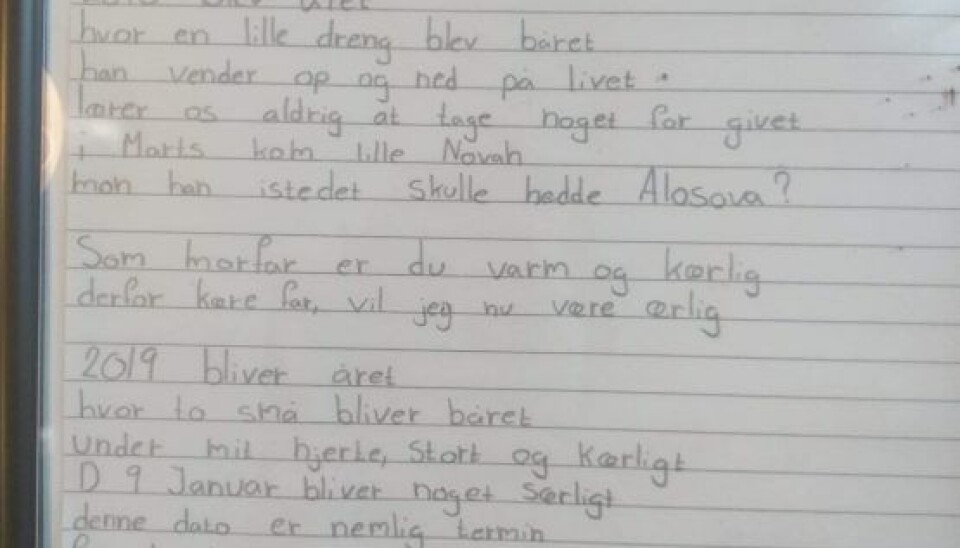 året
hvor en lille dreng blev båret
han vender op og ned på livet
lærer os aldrig at tage noget for givet
i Marts kom lille Novah
mon han istedet skulle hedde Alosova?
Som morfar er du varm og kærlig
derfor kære far, vil jeg nu være ærlig
2019 bliver året
hvor to små bliver båret
under mit hjerte, Stort og Kærligt
D 9 Januar bliver noget Særligt
denne dato er nemlig termin